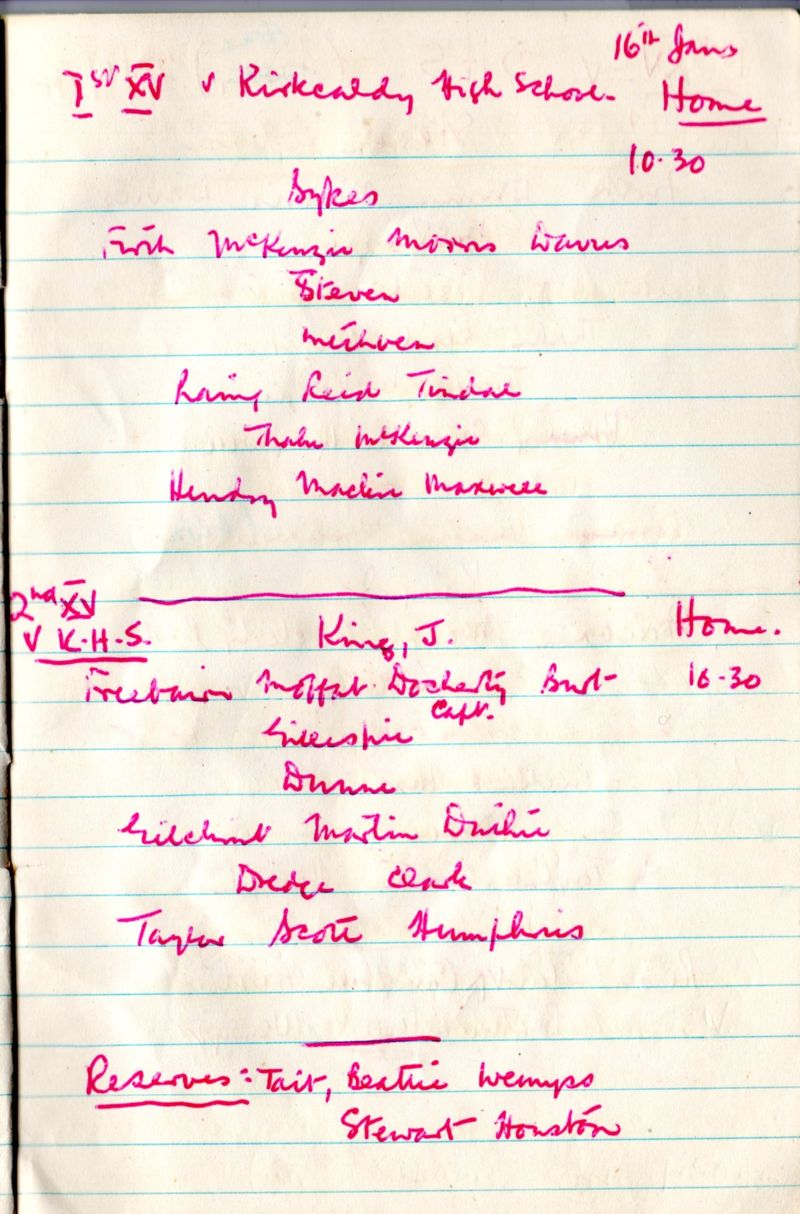 16th Jans
Ist XV v Kirkcaldy High School Home
10.30
Sykes
Firth McKenzie Morris Davies
Steven
Methven
Laing Reid Tindal
McKenzie
Hendry Mackie Maxwell
2nd XV
v K.H.S.
King, J. Home.
Freebairn Moffat Docherty Burt 10-30
Capt.
Gillespie
Dunne
Gilchrist Martin Duthie
Dredge Clark
Taylor Scott Humphris
Reserves: Tait, Beattie Wemyss
Stewart Houston